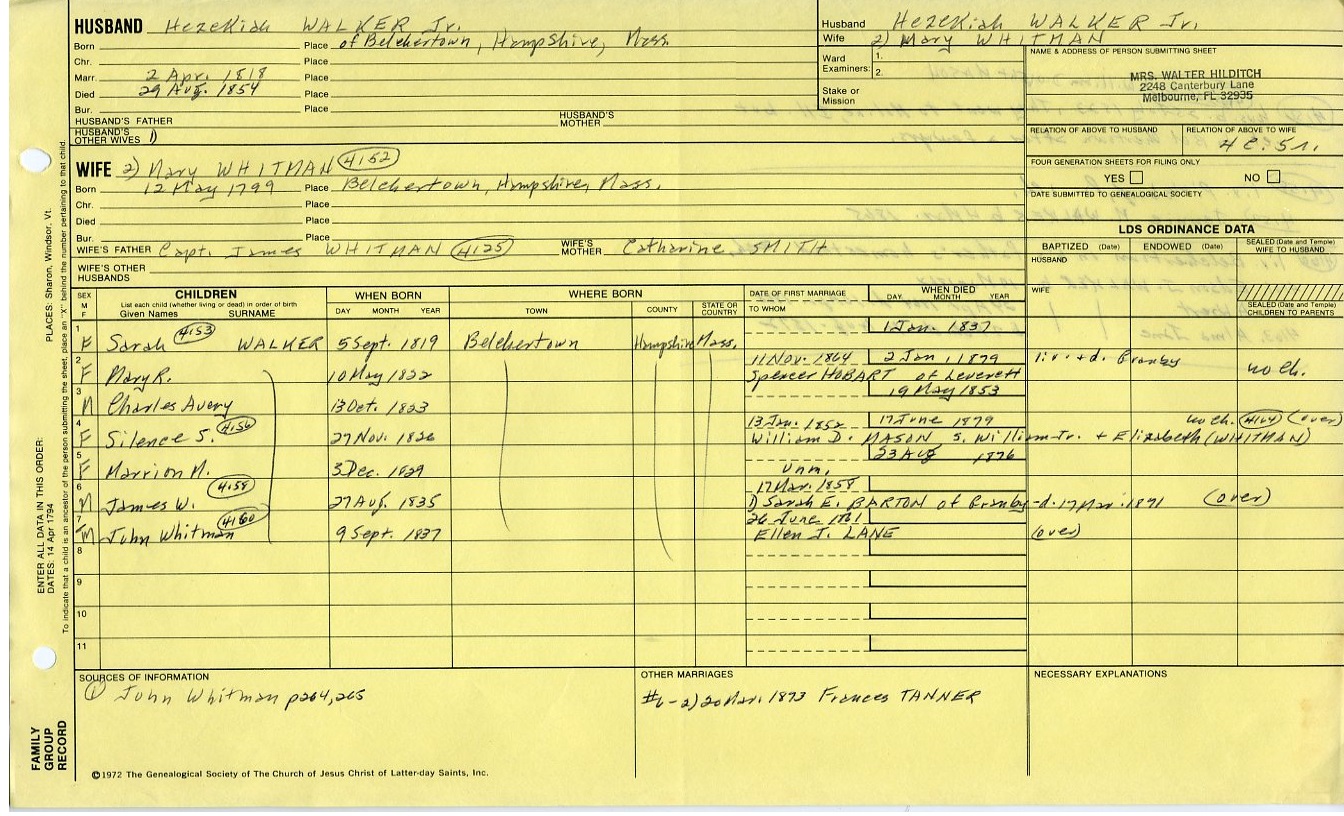 HUSBAND Hezekiah WALKER Jr.
Born Place of Belchertown, Hampshire, Mass.
Chr. Place
Marr. 2 Apr. 1818 Place
Died 29 Aug. 1854 Place
Bur. Place
HUSBAND'S FATHER HUSBAND'S MOTHER
HUSBAND'S OTHER WIVES 1)
Husband Hezekiah WALKER Jr.
Wife 2) Mary WHITMAN
Ward Examiners: 1.
2.
Stake or Mission
NAME & ADDRESS OF PERSON SUBMITTING SHEET
MRS. WALTER HILDITCH
2248 Canterbury Lane
Melbourne, FL 32935
RELATION OF ABOVE TO HUSBAND RELATION OF ABOVE TO WIFE
4c. 5r.
FOUR GENERATION SHEETS FOR FILING ONLY
YES NO
DATE SUBMITTED TO GENEALOGICAL SOCIETY
WIFE 2) Mary WHITMAN 4152
Born 12 May 1799 Place Belchertown, Hampshire, Mass.
Chr. Place
Died Place
Bur. Place
WIFE'S FATHER Capt. James WHITMAN 4125 WIFE'S MOTHER Catharine SMITH
WIFE'S OTHER HUSBANDS
LDS ORDINANCE DATA
BAPTIZED (Date) ENDOWED (Date) SEALED (Date and Temple) WIFE TO HUSBAND
HUSBAND
WIFE
SEALED (Date and Temple) CHILDREN TO PARENTS
SEX M F CHILDREN WHEN BORN WHERE BORN DATE OF FIRST MARRIAGE WHEN DIED
List each child (whether living or dead) in order of birth
Given Names SURNAME DAY MONTH YEAR TOWN COUNTY STATE OR COUNTRY TO WHOM DAY MONTH YEAR
1 F Sarah 4153 WALKER 5 Sept. 1819 Belchertown Hampshire Mass. 1 Jan. 1837
2 F Mary R. 10 May 1822 11 Nov. 1864 2 Jan. 1879 liv. + d. Granby no ch.
Spencer HOBART of Leverett
3 M Charles Avery 13 Oct. 1823 19 May 1853
4 F Silence S. 4156 27 Nov. 1826 13 Jan. 1852 17 June 1879 no ch. 4164 (over)
William D. MASON, s. William Jr. + Elizabeth (WHITMAN)
5 F Marrion M. 3 Dec. 1829 unm. 23 Aug 1876
6 M James W. 4158 27 Aug. 1835 17 Mar. 1858
1) Sarah E. BARTON of Granby - d. 17 Mar. 1871 (over)
7 M John Whitman 4160 9 Sept. 1837 26 June 1861
Ellen J. LANE (over)
8
9
10
11
SOURCES OF INFORMATION
① John Whitman p264,265
OTHER MARRIAGES
#6-2) 20 Mar. 1873 Frances TANNER
NECESSARY EXPLANATIONS
©1972 The Genealogical Society of The Church of Jesus Christ of Latter-day Saints, Inc.
FAMILY GROUP RECORD
ENTER ALL DATA IN THIS ORDER:
DATES: 14 Apr 1794
PLACES: Sharon, Windsor, Vt.
To indicate that a child is an ancestor of the person submitting the sheet, place an "X" behind the number pertaining to that child.